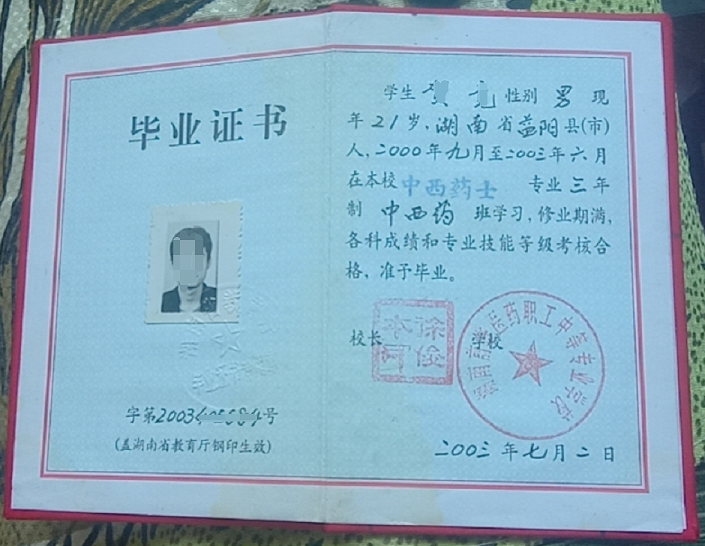 毕业证书
字第2003号
(盖湖南省教育厅钢印生效)
学生 贺 性别 男 现
年21岁,湖南省益阳县(市)
人,二000年九月至二00三年六月
在本校中西药士 专业三年
制 中西药 班学习,修业期满,
各科成绩和专业技能等级考核合
格,准予毕业。
校长 学校
医药职工中等专业学校
二00三年七月二日